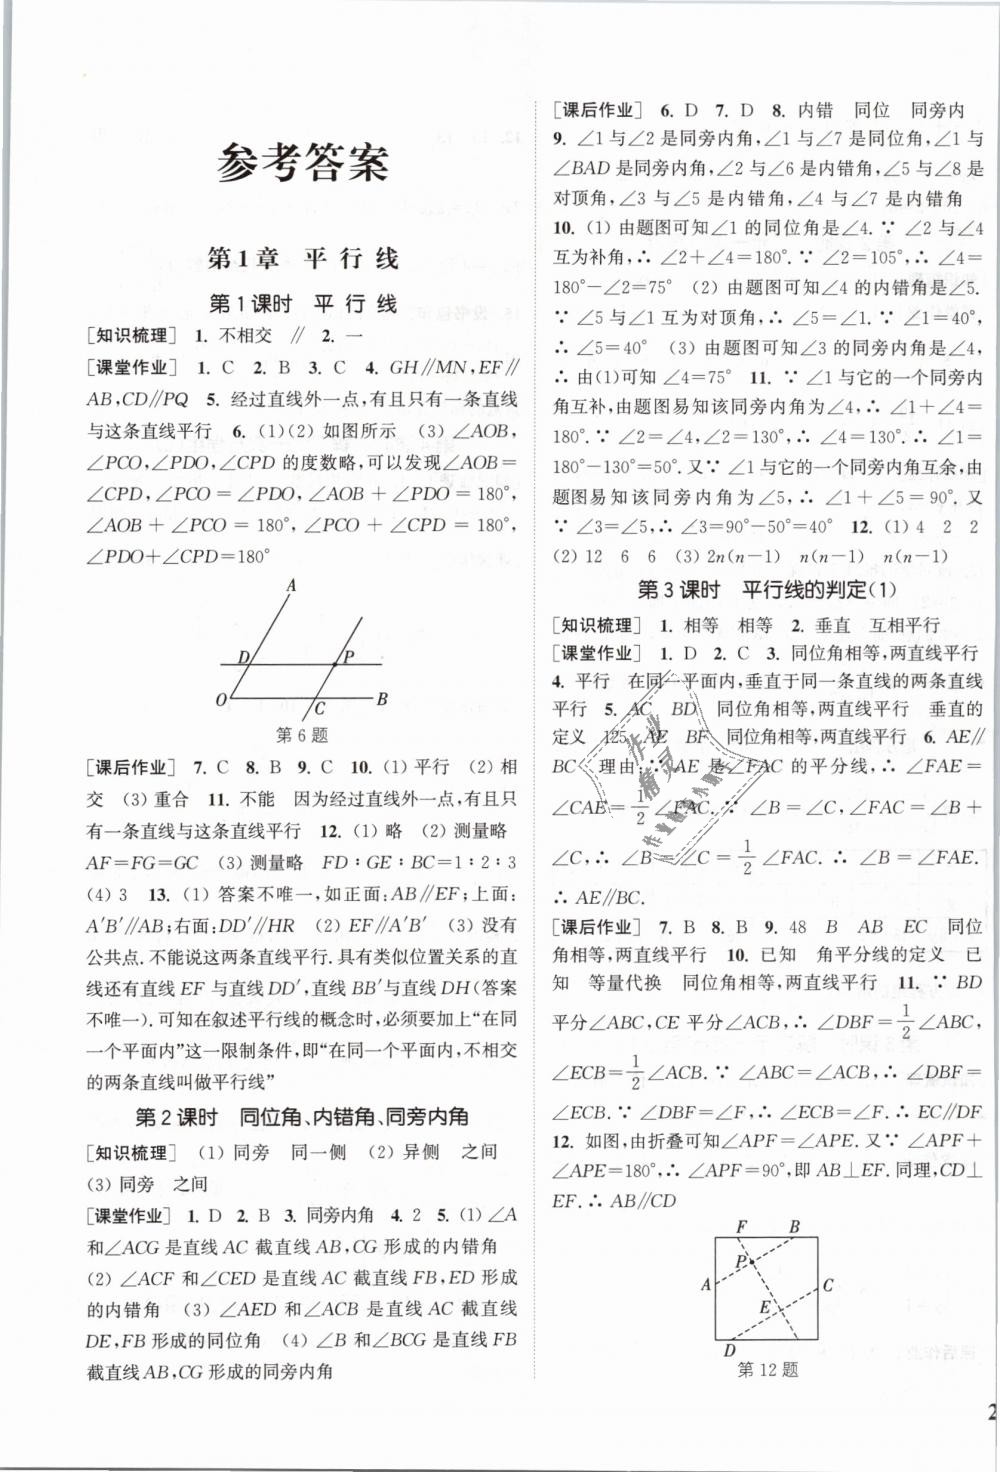 参考答案
第1章 平行线
第1课时 平行线
[知识梳理] 1. 不相交 ∥ 2. 一
[课堂作业] 1. C 2. B 3. C 4. GH∥MN,EF∥
AB,CD∥PQ 5. 经过直线外一点,有且只有一条直线
与这条直线平行 6. (1)(2) 如图所示 (3) ∠AOB,
∠PCO,∠PDO,∠CPD 的度数略,可以发现∠AOB=
∠CPD,∠PCO = ∠PDO,∠AOB + ∠PDO = 180°,
∠AOB + ∠PCO = 180°,∠PCO + ∠CPD = 180°,
∠PDO+∠CPD=180°
A
D
P
O
C
B
第6题
[课后作业] 7. C 8. B 9. C 10. (1) 平行 (2) 相
交 (3) 重合 11. 不能 因为经过直线外一点,有且只
有一条直线与这条直线平行 12. (1) 略 (2) 测量略
AF=FG=GC (3) 测量略 FD∶GE∶BC=1∶2∶3
(4) 3 13. (1) 答案不唯一,如正面:AB∥EF;上面:
A′B′∥AB;右面:DD′∥HR (2) EF∥A′B′ (3) 没有
公共点.不能说这两条直线平行.具有类似位置关系的直
线还有直线EF 与直线DD′,直线BB′与直线DH(答案
不唯一).可知在叙述平行线的概念时,必须要加上“在同
一个平面内”这一限制条件,即“在同一个平面内,不相交
的两条直线叫做平行线”
第2课时 同位角、内错角、同旁内角
[知识梳理] (1) 同旁 同一侧 (2) 异侧 之间
(3) 同旁 之间
[课堂作业] 1. D 2. B 3. 同旁内角 4. 2 5. (1) ∠A
和∠ACG 是直线 AC 截直线AB,CG 形成的内错角
(2) ∠ACF 和∠CED 是直线 AC 截直线 FB,ED 形成
的内错角 (3) ∠AED 和∠ACB 是直线 AC 截直线
DE,FB 形成的同位角 (4) ∠B 和∠BCG 是直线 FB
截直线AB,CG 形成的同旁内角
[课后作业] 6. D 7. D 8. 内错 同位 同旁内
9. ∠1与∠2是同旁内角,∠1与∠7是同位角,∠1与
∠BAD 是同旁内角,∠2与∠6是内错角,∠5与∠8是
对顶角,∠3与∠5是内错角,∠4与∠7是内错角
10. (1) 由题图可知∠1的同位角是∠4.∵ ∠2与∠4
互为补角,∴ ∠2+∠4=180°.∵ ∠2=105°,∴ ∠4=
180°−∠2=75° (2) 由题图可知∠4的内错角是∠5.
∵ ∠5与∠1互为对顶角,∴ ∠5=∠1.∵ ∠1=40°,
∴ ∠5=40° (3) 由题图可知∠3的同旁内角是∠4,
∴ 由(1)可知 ∠4=75° 11. ∵ ∠1与它的一个同旁内
角互补,由题图易知该同旁内角为∠4,∴ ∠1+∠4=
180°.∵ ∠2=∠4,∠2=130°,∴ ∠4=130°.∴ ∠1=
180°−130°=50°.又∵ ∠1与它的一个同旁内角互余,由
题图易知该同旁内角为∠5,∴ ∠1+∠5=90°.又
∵ ∠3=∠5,∴ ∠3=90°−50°=40° 12. (1) 4 2 2
(2) 12 6 6 (3) 2n(n−1) n(n−1) n(n−1)
第3课时 平行线的判定(1)
[知识梳理] 1. 相等 相等 2. 垂直 互相平行
[课堂作业] 1. D 2. C 3. 同位角相等,两直线平行
4. 平行 在同一平面内,垂直于同一条直线的两条直线
平行 5. AC BD 同位角相等,两直线平行 垂直的
定义 125 AE BF 同位角相等,两直线平行 6. AE∥
BC 理由:∵ AE 是∠FAC 的平分线,∴ ∠FAE=
∠CAE=1/2∠FAC.∵ ∠B=∠C,∠FAC=∠B+
∠C,∴ ∠B=∠C=1/2∠FAC.∴ ∠B=∠FAE.
∴ AE∥BC.
[课后作业] 7. B 8. B 9. 48 B AB EC 同位
角相等,两直线平行 10. 已知 角平分线的定义 已
知 等量代换 同位角相等,两直线平行 11. ∵ BD
平分∠ABC,CE 平分∠ACB,∴ ∠DBF=1/2∠ABC,
∠ECB=1/2∠ACB.∵ ∠ABC=∠ACB,∴ ∠DBF=
∠ECB.∵ ∠DBF=∠F,∴ ∠ECB=∠F.∴ EC∥DF
12. 如图,由折叠可知∠APF=∠APE.又∵ ∠APF+
∠APE=180°,∴ ∠APF=90°,即 AB⊥EF.同理,CD⊥
EF.∴ AB∥CD
F
B
P
A
C
E
D
第12题
2